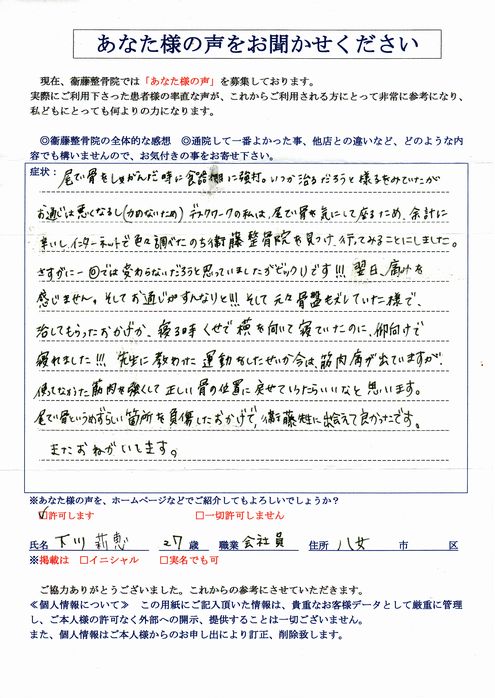 あなた様の声をお聞かせください
現在、衞藤整骨院では「あなた様の声」を募集しております。
実際にご利用下さった患者様の率直な声が、これからご利用される方にとって非常に参考になり、
私どもにとっても何よりの力になります。
◎衞藤整骨院の全体的な感想 ◎通院して一番よかった事、他店との違いなど、どのような内
容でも構いませんので、お気付きの事をお寄せ下さい。
症状：尾てい骨をしゃがんだ時に食器棚に強打。いつか治るだろうと様子をみていたが
お通じは悪くなるし(力めないため) デスクワークの私は、尾てい骨を気にして座るため、余計に
辛いし、インターネットで色々調べたのち衞藤整骨院を見つけ、行ってみることにしました。
さすがに一回では変わらないだろうと思っていましたがビックリです!!! 翌日、痛みを
感じません。そしてお通じがすんなりと!!! そして元々骨盤もズレていた様で、
治してもらったおかげか、寝る時くせで横を向いて寝ていたのに、仰向けで
寝れました!!! 先生に教わった運動をしたせいか今は、筋肉痛が出ていますが、
使ってなかった筋肉を強くして正しい骨の位置に戻せていけたらいいなと思います。
尾てい骨というめずらしい箇所を負傷したおかげで、衞藤先生に出会えて良かったです。
またおねがいします。
※あなた様の声を、ホームページなどでご紹介してもよろしいでしょうか？
☑許可します □一切許可しません
氏名 下川 莉恵 27歳 職業 会社員 住所 八女 市 区
※掲載は □イニシャル □実名でも可
ご協力ありがとうございました。これからの参考にさせていただきます。
≪個人情報について≫ この用紙にご記入頂いた情報は、貴重なお客様データとして厳重に管理
し、ご本人様の許可なく外部への開示、提供することは一切ございません。
また、個人情報はご本人様からのお申し出により訂正、削除致します。